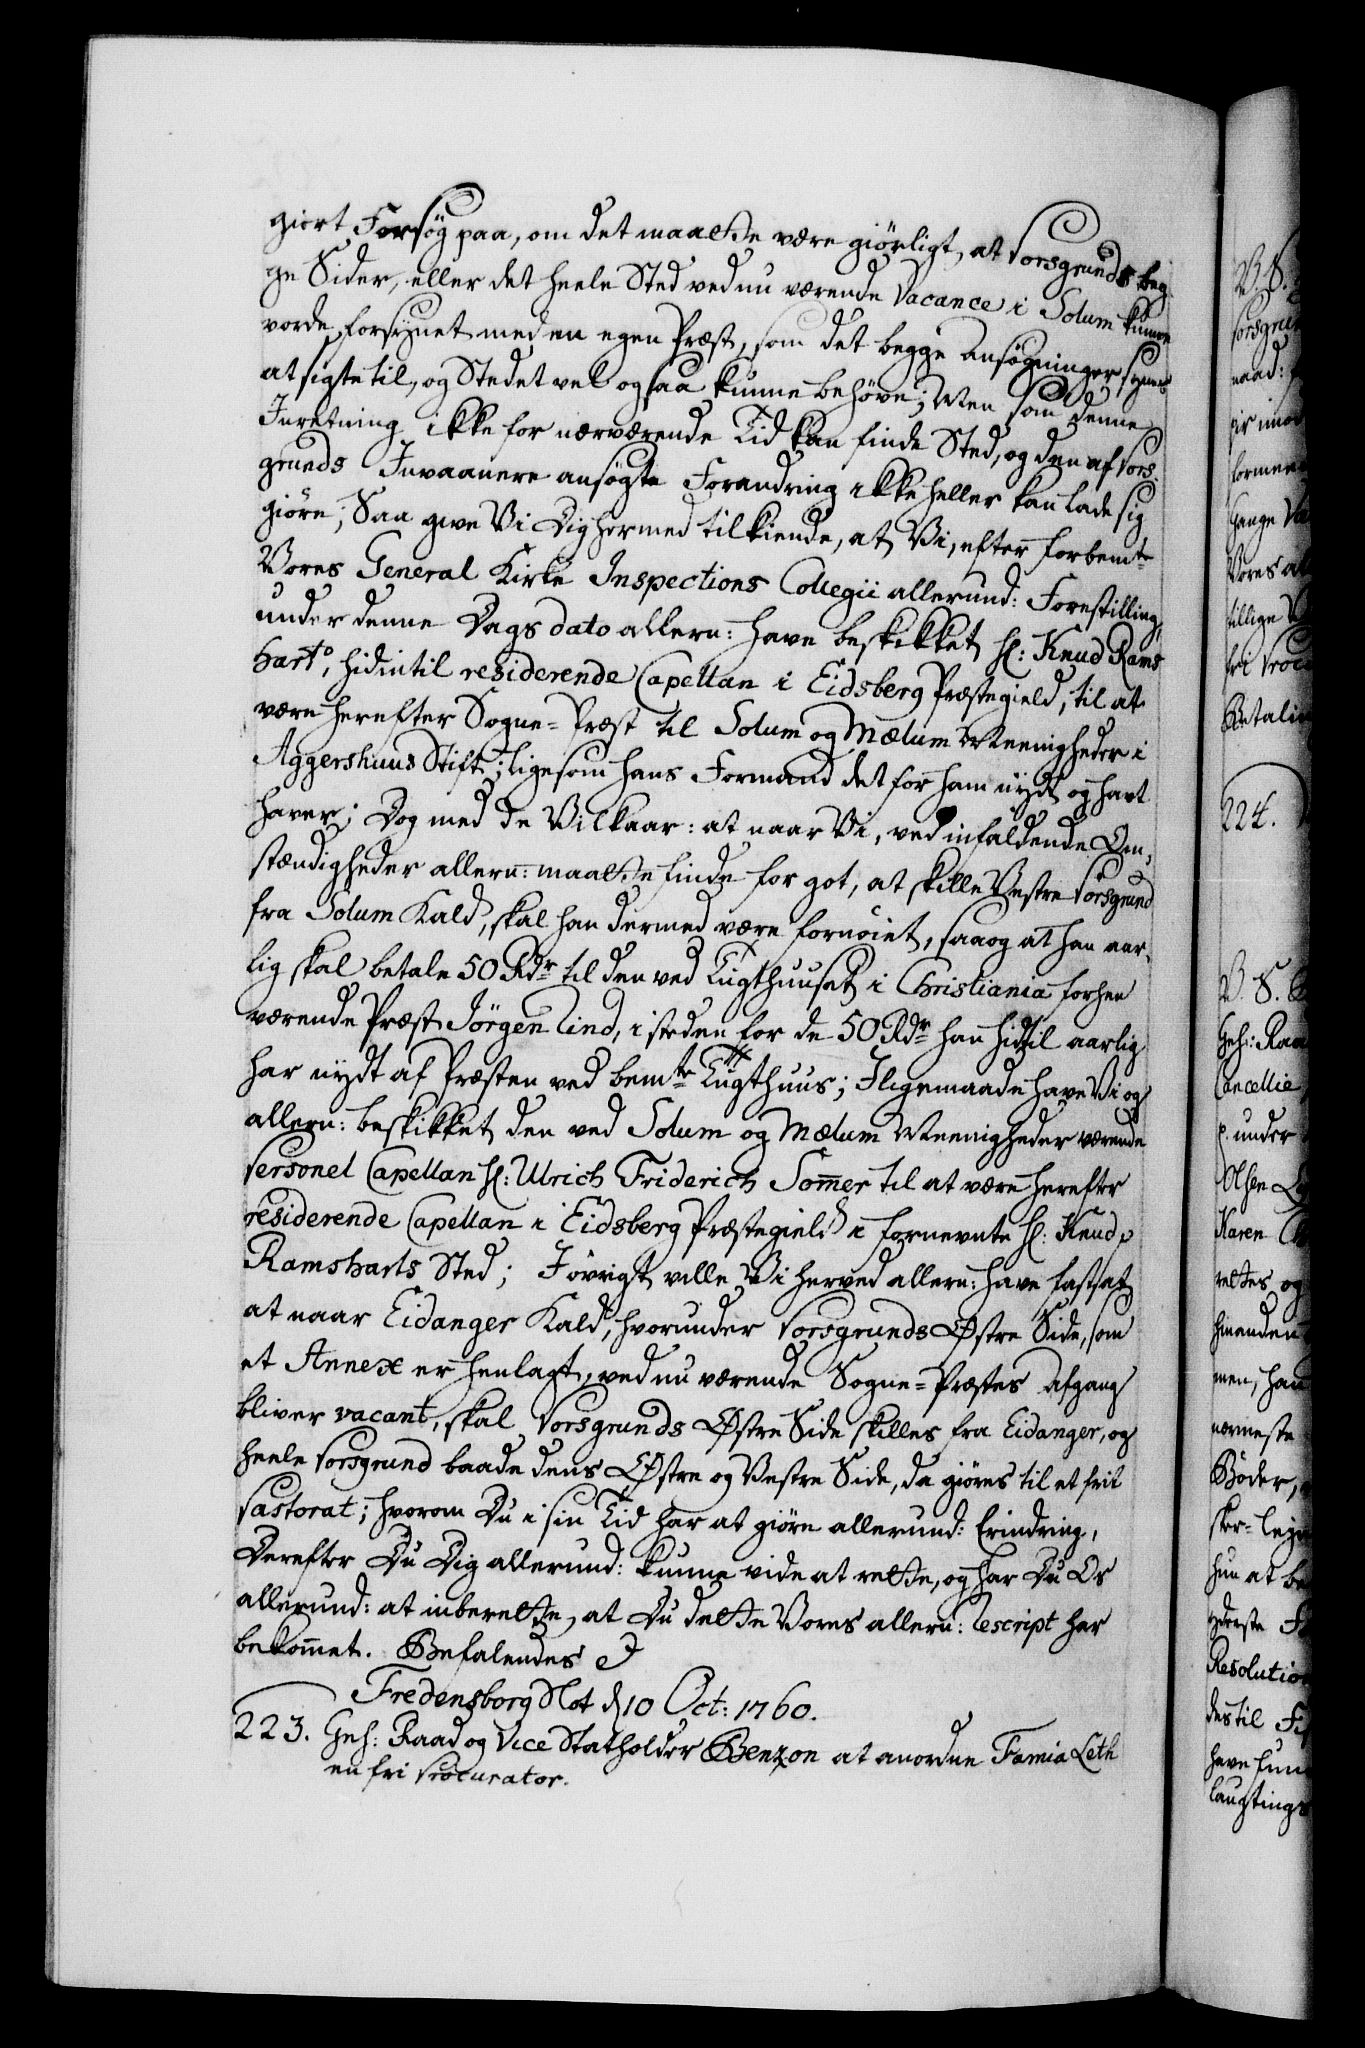 giort Forsøg paa, om det maatte være giørligt, at Porsgrunds beg-
ge Sider, eller det heele Sted ved nu værende Vacance i Solum kunne
vorde forsynet med en egen Præst, som det begge Ansøgninger synes
at sigte til, og Stedet vel og saa kunne behøve; Men som denne
Inretning ikke for nærværende Tid kan finde Sted, og den af Pors-
grunds Invaanere ansøgte Forandring ikke heller kan lade sig
giøre; Saa give Vi Dig hermed tilkiende, at Vi, efter forbemte
Vores General Kirke Inspections Collegii allerund: Forestilling,
under denne Dags dato allern: have beskikket Hr: Knud Rams
hart, hidintil residerende Capellan i Eidsberg Præstegield, til at
være herefter Sogne-Præst til Solum og Mælum Meenigheder i
Aggershuus Stift; ligesom hans Formand det for ham nydt og havt
haver; Dog med de Vilkaar: at naar Vi, ved infaldende Om-
stændigheder allern: maatte finde for got, at skille Vestre Porsgrund
fra Solum Kald, skal han dermed være fornøiet, saa og at han aar-
lig skal betale 50 Rdr til den ved Tugthuuset i Christiania forhen
værende Præst Jørgen Lind, i steden for de 50 Rdr han hidtil aarlig
har nydt af Præsten ved bemte Tugthuus; Iligemaade have Vi og
allern: beskikket den ved Solum og Mælum Meenigheder værende
Personel Capellan Hr: Ulrich Friderich Som̃er til at være herefter
residerende Capellan i Eidsberg Præstegield i fornevnte Hr: Knud
Ramsharts Sted; I øvrigt ville Vi herved allern: have fastsat,
at naar Eidanger Kald, hvorunder Porsgrunds Østre Side, som
et Annex er henlagt, ved nu værende Sogne-Præstes afgang
bliver vacant, skal Porsgrunds Østre Side skilles fra Eidanger, og
heele Porsgrund baade dens Østre og Vestre Side, da giøres til et frit
Pastorat; hvorom Du i sin Tid har at giøre allerund: Erindring,
Derefter Du Dig allerund: kunne vide at rette, og har Du Os
allerund: at inberette, at Du dette Vores allern: Rescript har
bekom̃et. Befalendes
Fredensborg Slot d 10 Oct: 1760.
223. Geh: Raad og Vice Statholder Benzon at anordne Famia Leth
en fri Procurator.
224.